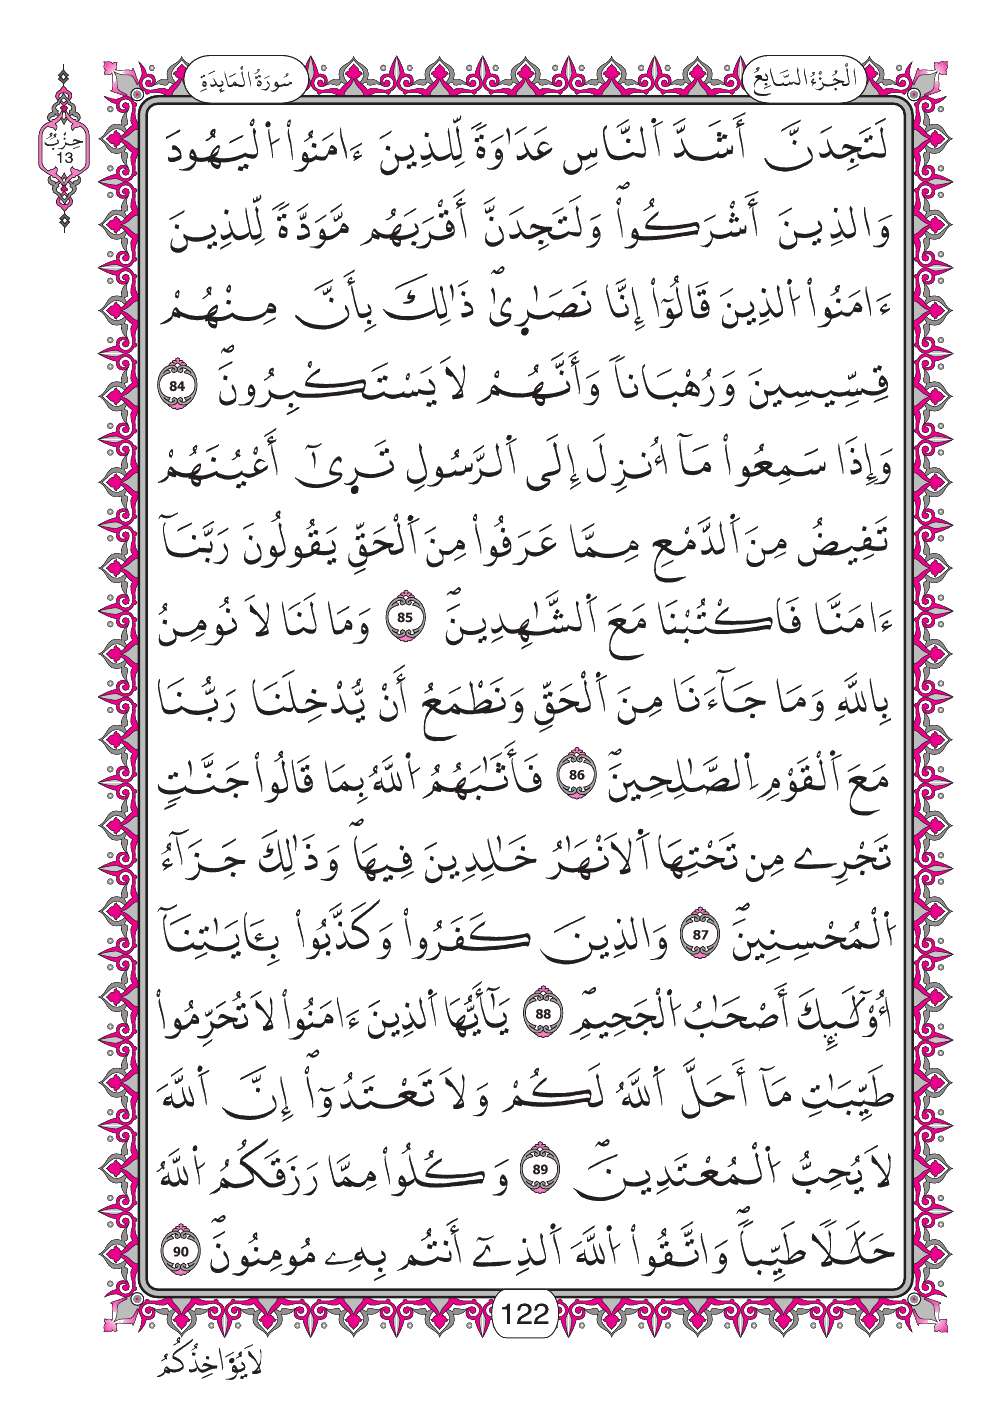 سُورَةُ الْمَايِٕدَةِ
الْجُزْءُ السَّابِعُ
حِزْبٌ
13
لَتَجِدَنَّ أَشَدَّ اَ۬لنَّاسِ عَدَٰوَةٗ لِّلذِينَ ءَامَنُواْ اُ۬لْيَهُودَ
وَالذِينَ أَشْرَكُواْۖ وَلَتَجِدَنَّ أَقْرَبَهُم مَّوَدَّةٗ لِّلذِينَ
ءَامَنُواْ اُ۬لذِينَ قَالُوٓاْ إِنَّا نَصَٰر۪ىٰۖ ذَٰلِكَ بِأَنَّ مِنْهُمْ
قِسِّيسِينَ وَرُهْبَاناٗ وَأَنَّهُمْ لَا يَسْتَكْبِرُونَۖ 84
وَإِذَا سَمِعُواْ مَآ أُنزِلَ إِلَى اَ۬لرَّسُولِ تَر۪ىٰٓ أَعْيُنَهُمْ
تَفِيضُ مِنَ اَ۬لدَّمْعِ مِمَّا عَرَفُواْ مِنَ اَ۬لْحَقِّ يَقُولُونَ رَبَّنَآ
ءَامَنَّا فَاكْتُبْنَا مَعَ اَ۬لشَّٰهِدِينَۖ 85 وَمَا لَنَا لَا نُومِنُ
بِاللَّهِ وَمَا جَآءَنَا مِنَ اَ۬لْحَقِّ وَنَطْمَعُ أَنْ يُّدْخِلَنَا رَبُّنَا
مَعَ اَ۬لْقَوْمِ اِ۬لصَّٰلِحِينَۖ 86 فَأَثَٰبَهُمُ اُ۬للَّهُ بِمَا قَالُواْ جَنَّٰتٖ
تَجْرِے مِن تَحْتِهَا اَ۬لَانْهَٰرُ خَٰلِدِينَ فِيهَاۖ وَذَٰلِكَ جَزَآءُ
اُ۬لْمُحْسِنِينَۖ 87 وَالذِينَ كَفَرُواْ وَكَذَّبُواْ بِـَٔايَٰتِنَآ
أُوْلَٰٓئِكَ أَصْحَٰبُ اُ۬لْجَحِيمِۖ 88 يَٰٓأَيُّهَا اَ۬لذِينَ ءَامَنُواْ لَا تُحَرِّمُواْ
طَيِّبَٰتِ مَآ أَحَلَّ اَ۬للَّهُ لَكُمْ وَلَا تَعْتَدُوٓاْۖ إِنَّ اَ۬للَّهَ
لَا يُحِبُّ اُ۬لْمُعْتَدِينَۖ 89 وَكُلُواْ مِمَّا رَزَقَكُمُ اُ۬للَّهُ
حَلَٰلاٗ طَيِّباٗۖ وَاتَّقُواْ اُ۬للَّهَ اَ۬لذِےٓ أَنتُم بِهِۦ مُومِنُونَۖ 90
122
لَا يُؤَاخِذُكُمُ